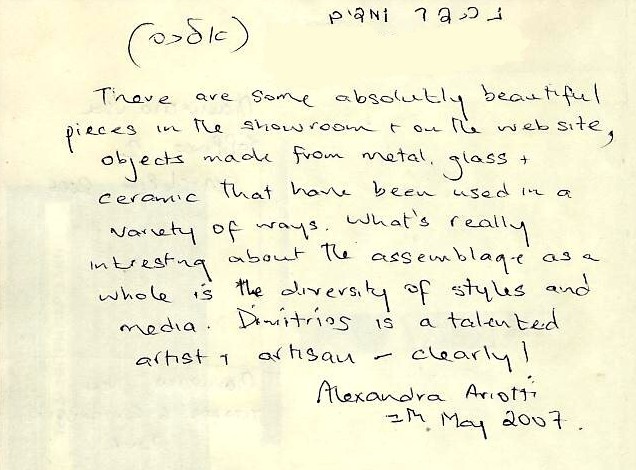 There are some absolutely beautiful
pieces in the showroom + on the website,
objects made from metal, glass +
ceramic that have been used in a
variety of ways. What's really
intresting about the assemblage as a
whole is the diversity of styles and
media. Dimitrios is a talented
artist + artisan - clearly!
Alexandra Ariotti
May 2007.